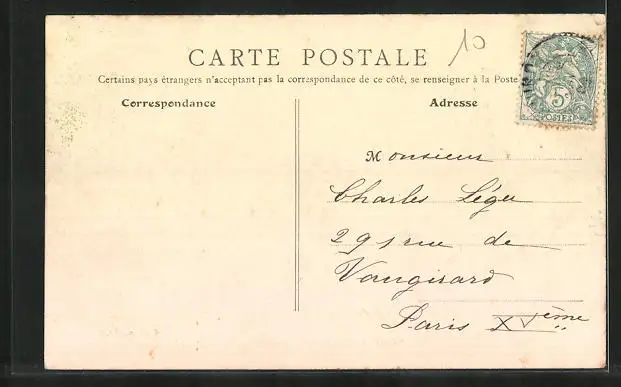 10
CARTE POSTALE
Certains pays étrangers n'acceptant pas la correspondance de ce côté, se renseigner à la Poste
Correspondance
Adresse
5c
POSTES
Monsieur
Charles Léger
291 rue de
Vaugirard
Paris XVème